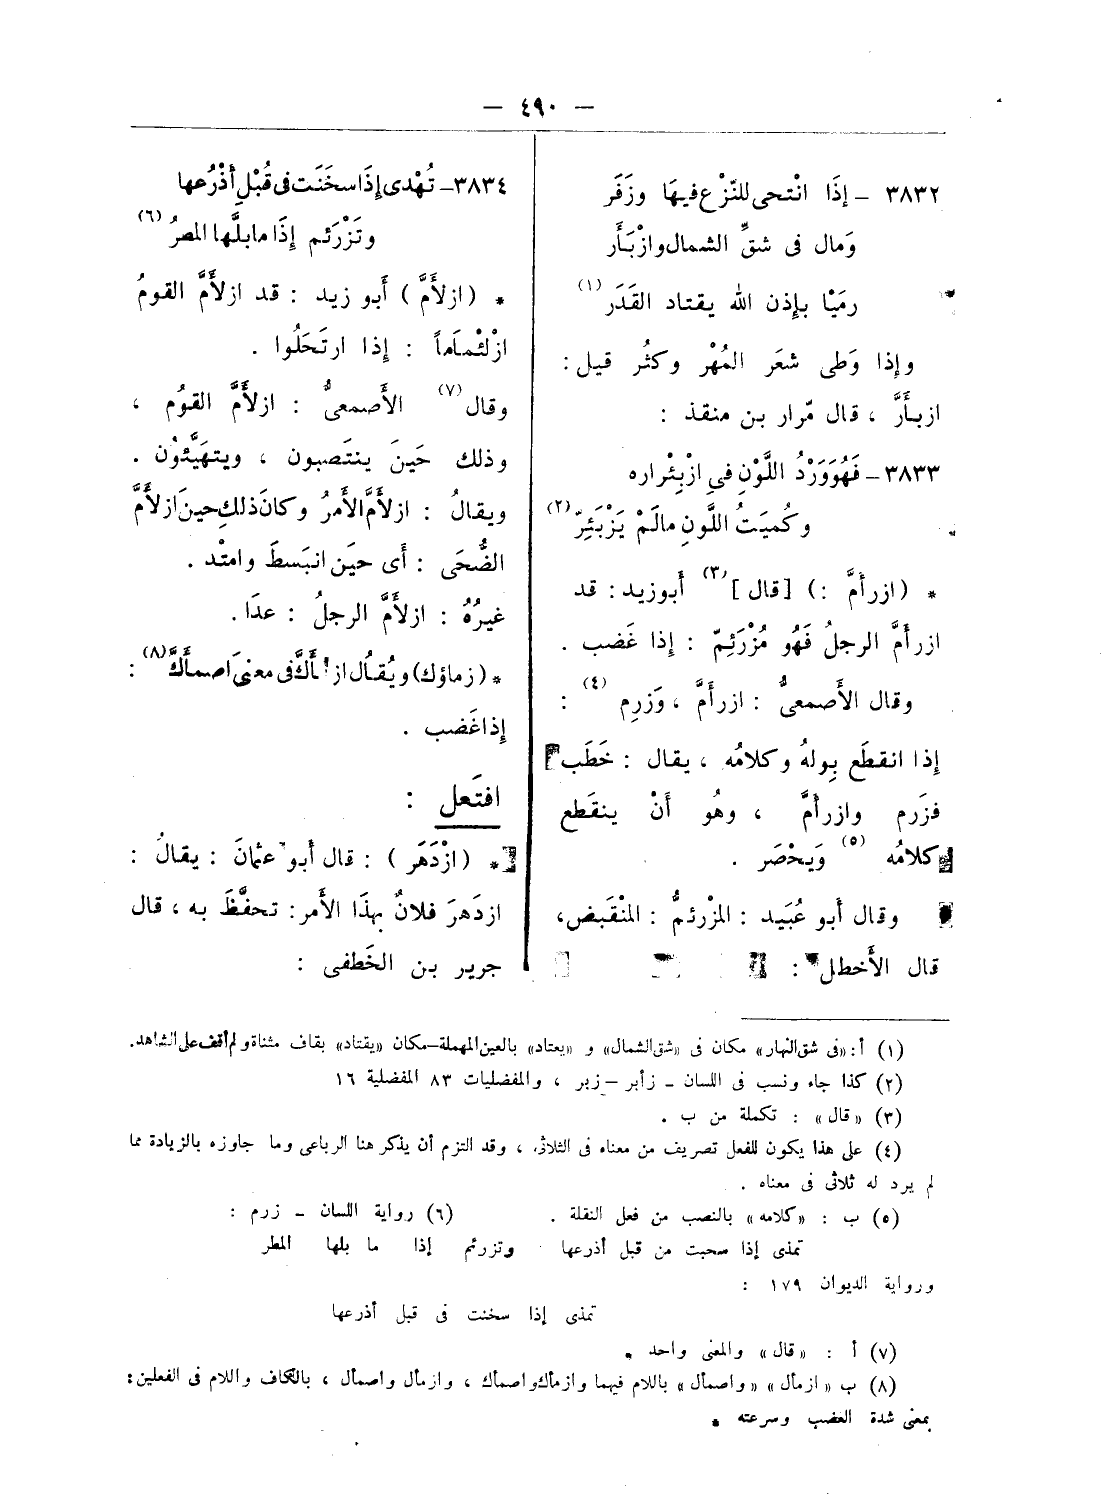 — ٤٩٠ —
٣٨٣٢ – إذَا انْتحى للنّزْع فيهَا وزَفَر
وَمال فى شقِّ الشمال وازْبَأَر
رميًا بإذن الله يقتاد القَدَر (١)
وإذا وَطى شعَر المُهْر وكثُر قيل :
ازبأَرَّ ، قال مرّار بن منقذ :
٣٨٣٣ – فَهُوَ وَرْدُ اللَّوْنِ فى ازْبِئْراره
وكُميَتُ اللَّونِ مالَمْ يَزْبَئِرّ (٢)
* (ازرأَمَّ :) [قال] (٣) أبوزيد : قد
ازرأَمَّ الرجلُ فَهُو مُزْرَئِمّ : إذا غَضب .
وقال الأَصمعىُّ : ازرأَمَّ ، وَزرِم (٤) :
إذا انقطَع بولهُ وكلامُه ، يقال : خَطَب
فزَرم وازرأَمَّ ، وهُو أَنْ ينقَطع
كلامُه (٥) وَيَحْصَر .
وقال أَبو عُبَيد : المزْرئمُّ : المنْقَبض،
قال الأَخطل :
٣٨٣٤ – تُهْدى إذَا سخَنَت فى قُبْلِ أَذْرُعها
وتَزْرَئم إذَا ما بلَّها المصرُ (٦)
* (ازلأَمَّ) أَبو زيد : قد ازلأَمَّ القومُ
ازْلئْمامَاً : إذا ارتَحَلُوا .
وقال (٧) الأَصمعىُّ : ازلأَمَّ القوُم ،
وذلك حَينَ ينتَصبون ، ويتهَيَّئوْن .
ويقالُ : ازلأَمَّ الأَمرُ وكانَ ذلكِ حينَ ازلأَمَّ
الضُّحَى : أَى حيَن انبَسطَ وامتْد .
غيرُهُ : ازلأَمَّ الرجلُ : عدَا .
* (زماؤك) ويُقاُل از مأَكَّ فى معنىَ اصمأَكَّ (٨) :
إذا غَضب .
افتَعل :
* (ازْدَهَر) : قال أَبو عثمانَ : يقالُ :
ازدَهرَ فلانٌ بهذَا الأَمر: تحفَّظَ به ، قال
جرير بن الخَطفى :
(١) أ : «فى شق النهار» مكان فى «شق الشمال» و «يعتاد» بالعين المهملة – مكان «يقتاد» بقاف مثناة ولم أقف على الشاهد.
(٢) كذا جاء ونسب فى اللسان – زأبر – زبر ، والمفضليات ٨٣ المفضلية ١٦
(٣) «قال» : تكملة من ب .
(٤) على هذا يكون للفعل تصريف من معناه فى الثلاثى ، وقد التزم أن يذكر هنا الرباعى وما جاوزه بالزيادة مما
لم يرد له ثلاثى فى معناه .
(٥) ب : «كلامه» بالنصب من فعل النقلة . (٦) رواية اللسان – زرم :
تمذى إذا سحبت من قبل أذرعها وتزرئم إذا ما بلها المطر
ورواية الديوان ١٧٩ :
تمذى إذا سخنت فى قبل أذرعها
(٧) أ : «قال» والمعنى واحد .
(٨) ب «ازمأل» «واصمأل» باللام فيهما وازمأك واصمأك ، وازمأل واصمأل ، بالكاف واللام فى الفعلين :
بمعنى شدة الغضب وسرعته .